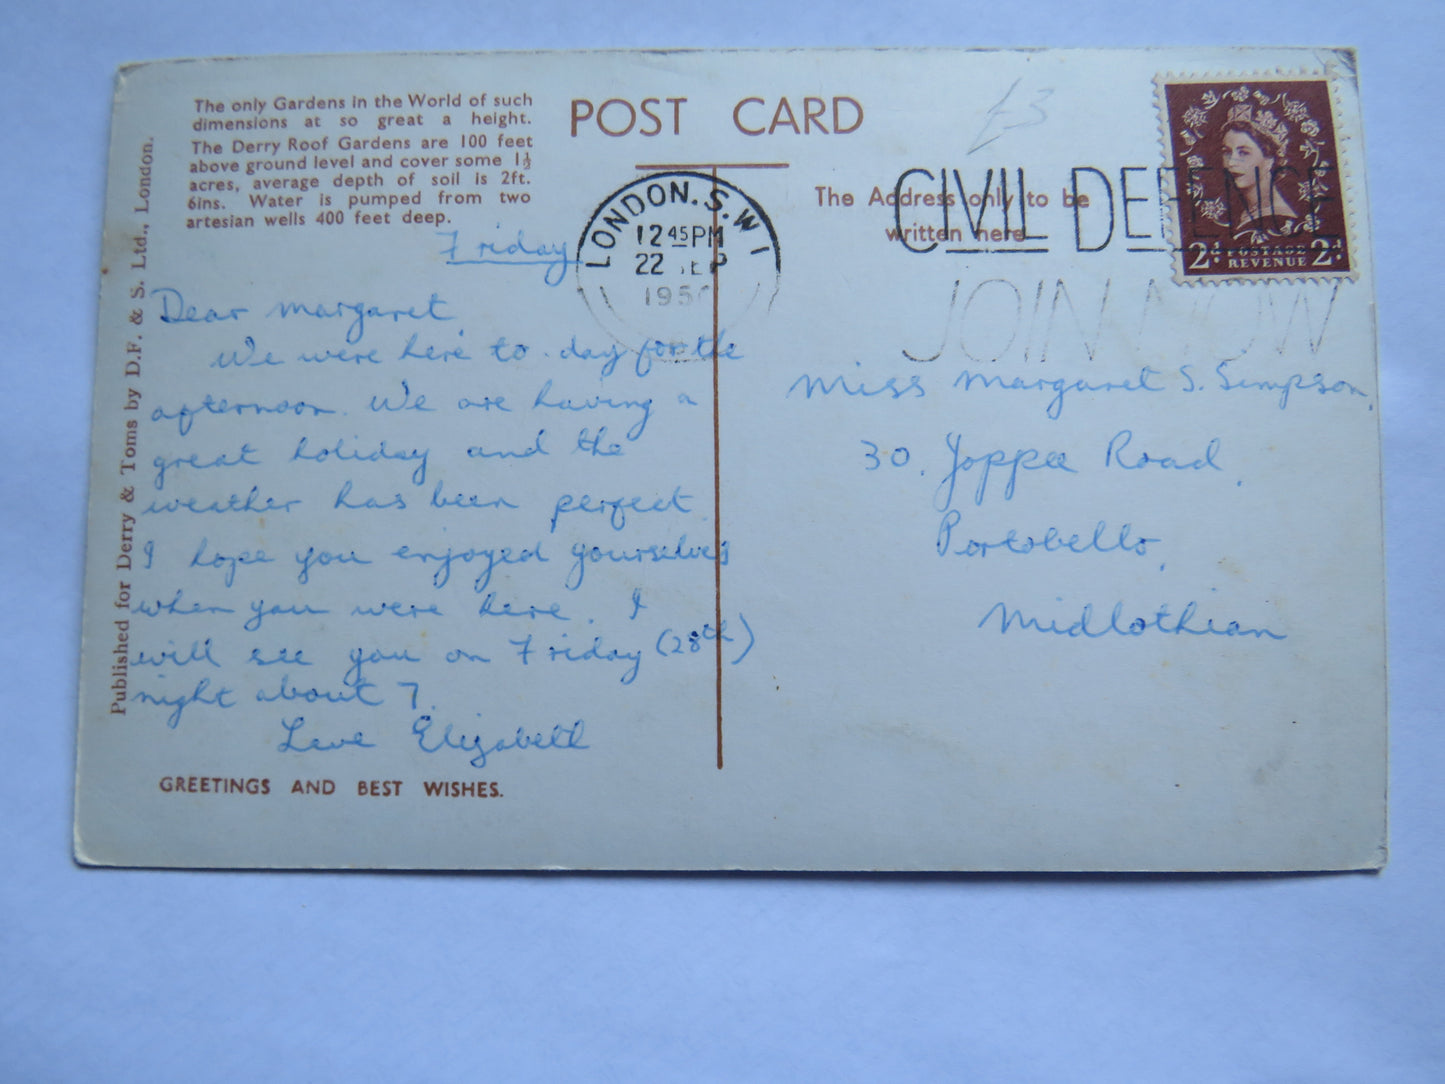 The only Gardens in the World of such
dimensions at so great a height.
The Derry Roof Gardens are 100 feet
above ground level and cover some 1½
acres, average depth of soil is 2ft.
6ins. Water is pumped from two
artesian wells 400 feet deep.
POST CARD
£3
The Address only to be
written here
LONDON. S.W.1
12 45 PM
22 SEP
195
CIVIL DEFENCE
JOIN NOW
2d POSTAGE 2d
REVENUE
Friday
Dear Margaret,
We were here to-day for the
afternoon. We are having a
great holiday and the
weather has been perfect.
I hope you enjoyed yourselves
when you were here. I
will see you on Friday (28th)
night about 7.
Love Elizabeth
GREETINGS AND BEST WISHES.
Published for Derry & Toms by D.F. & S. Ltd., London.
Miss Margaret S. Simpson,
30, Joppa Road,
Portobello,
Midlothian